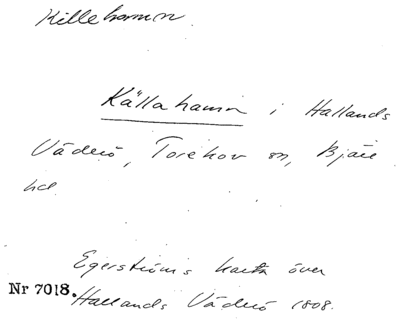 Killehamn
Källahamn i Hallands
Väderö, Torekov sn, Bjäre
hd
Egerströms karta över
Nr 7018.
Hallands Väderö 1808.